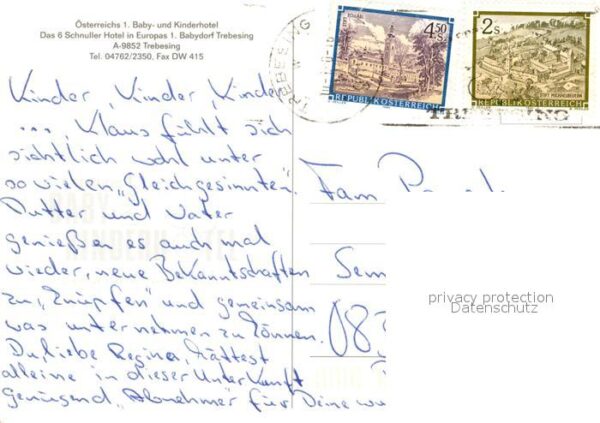 Österreichs 1. Baby- und Kinderhotel
Das 6 Schnuller Hotel in Europas 1. Babydorf Trebesing
A-9852 Trebesing
Tel. 04762/2350, Fax DW 415
4.50 S
REPUBLIK ÖSTERREICH
2 S
REPUBLIK ÖSTERREICH
TREBESING
TREBESING
Kinder, Kinder, Kinder
..., Klaus fühlt sich
sichtlich wohl unter
so vielen „Gleichgesinnten".
Mutter und Vater
genießen es auch mal
wieder, neue Bekanntschaften
zu „knüpfen" und gemeinsam
was unternehmen zu können.
Du, liebe Regina, hättest
alleine in dieser Unterkunft
genügend „Abnehmer" für Deine
Fam
Sem
privacy protection
Datenschutz